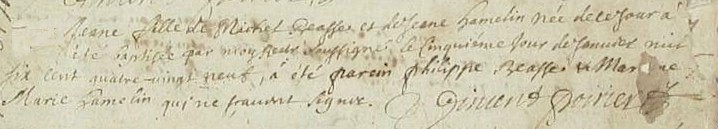 Jeanne fille de Michel Beasse et de Jeanne hamelin née de ce jour à
été baptisée par moy soussigné le Cinquiéme jour de Janvier mil
six cent quatre vingt neuf, a été parein philippe Beasse & Mareine
Marie hamelin qui ne sçauent signer.